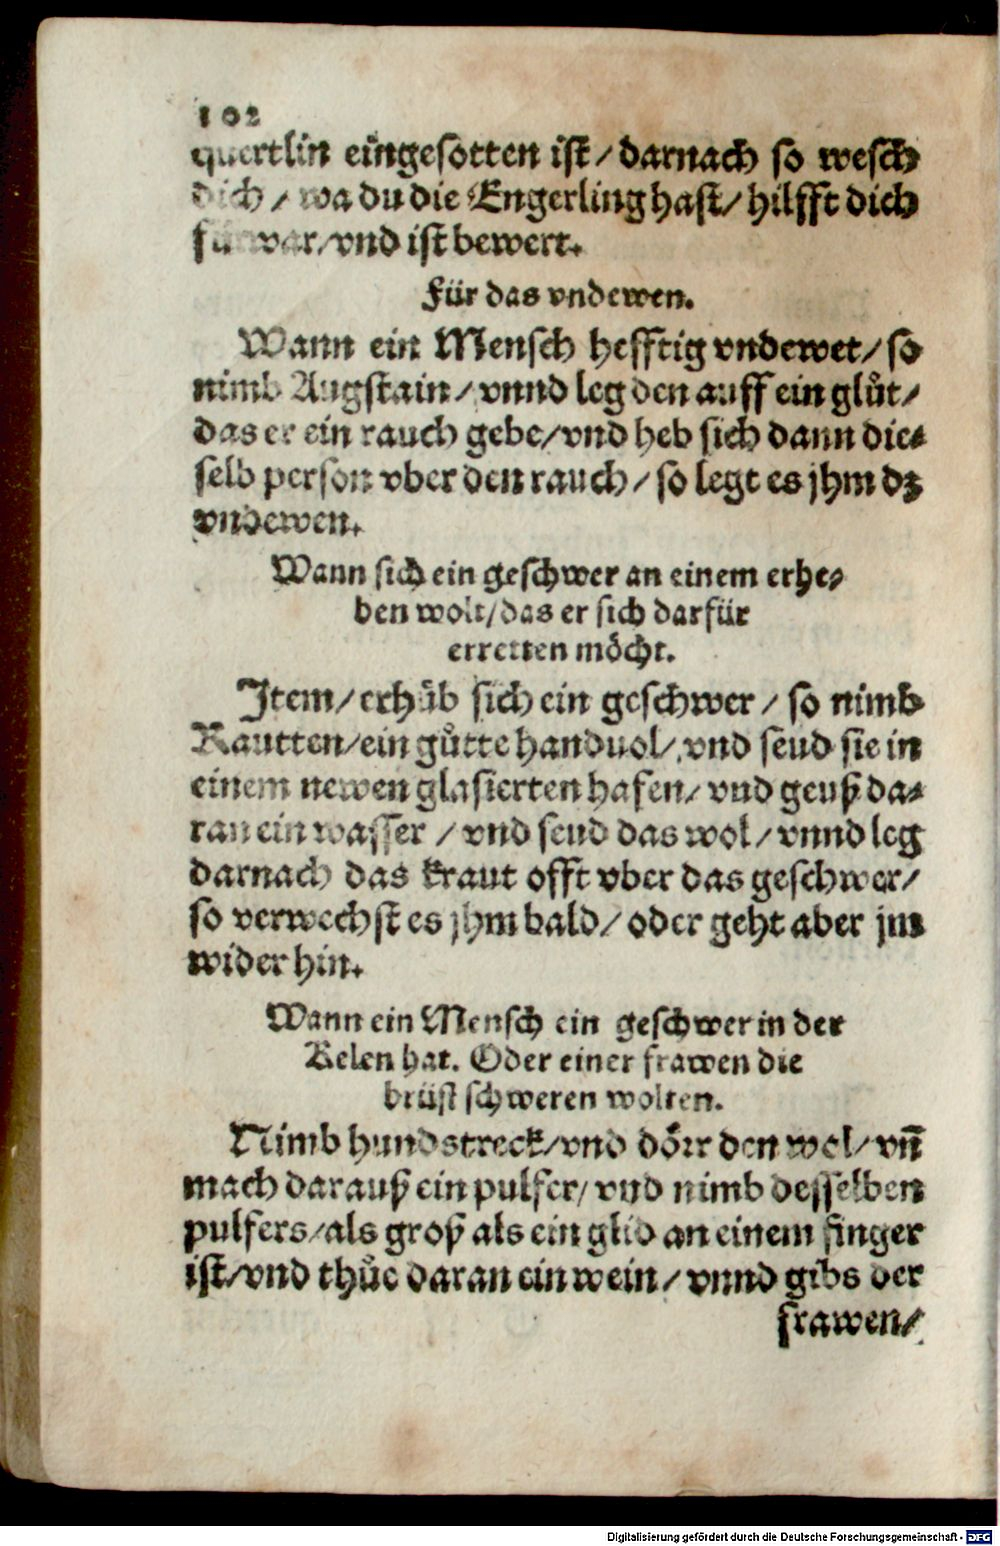 102
quertlin eingesotten ist / darnach so wesch
dich / wa du die Engerling hast / hilfft dich
fürwar / vnd ist bewert.
Für das vndewen.
Wann ein Mensch hefftig vndewet / so
nimb Augstain / vnnd leg den auff ein glůt /
das er ein rauch gebe / vnd heb sich dann die⸗
selb person vber den rauch / so legt es jhm dz
vndewen.
Wann sich ein geschwer an einem erhe⸗
ben wolt / das er sich darfür
erretten möcht.
Item / erhůb sich ein geschwer / so nimb
Rautten / ein gůtte handuol / vnd seud sie in
einem newen glasierten hafen / vnd geuß da⸗
ran ein wasser / vnd seud das wol / vnnd leg
darnach das kraut offt vber das geschwer /
so verwechst es jhm bald / oder geht aber jm
wider hin.
Wann ein Mensch ein geschwer in der
Kelen hat. Oder einer frawen die
brüst schweren wolten.
Nimb hundstreck / vnd dörr den wol / vñ
mach darauß ein pulfer / vnd nimb desselben
pulfers / als groß als ein glid an einem finger
ist / vnd thůe daran ein wein / vnnd gibs der
frawen /
Digitalisierung gefördert durch die Deutsche Forschungsgemeinschaft - DFG